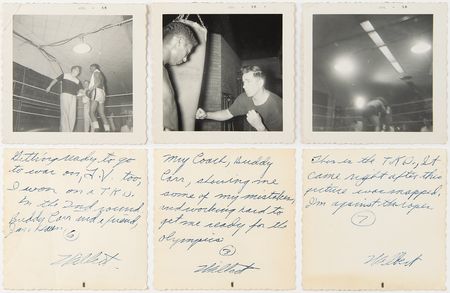 Getting ready to go
to war on, T.V. too,
I won on a T.K.O.
In the 2nd round,
Buddy Carr and a friend,
6
Wilbert
My Coach, Buddy
Carr, showing me
some of my mistakes,
and working hard to
get me ready for the
Olympics
Wilbert
This is the T.K.O., It
came right after this
picture was snapped,
I'm against the ropes
7
Wilbert